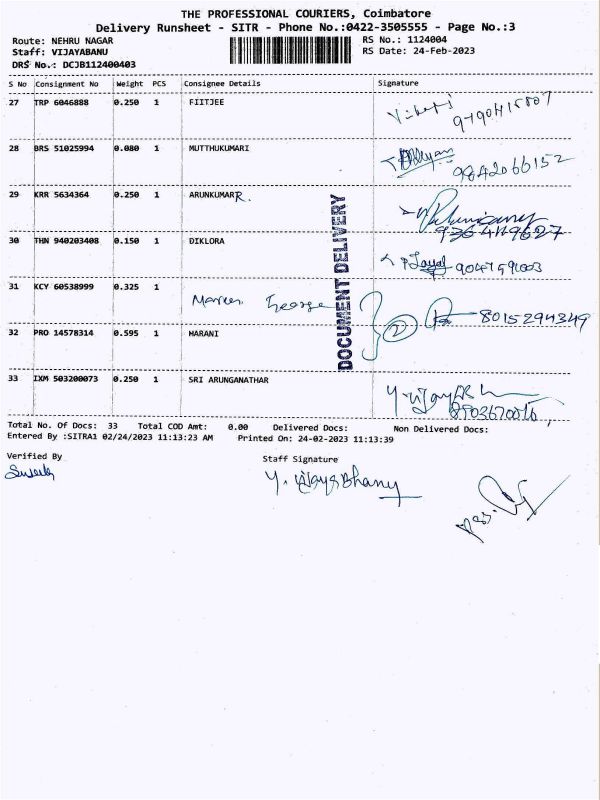 THE PROFESSIONAL COURIERS, Coimbatore
Delivery Runsheet - SITR - Phone No.:0422-3505555 - Page No.:3
Route: NEHRU NAGAR RS No.: 1124004
Staff: VIJAYABANU RS Date: 24-Feb-2023
DRS No.: DCJB112400403
S No Consignment No Weight PCS Consignee Details Signature
27 TRP 6046888 0.250 1 FIITJEE
28 BRS 51025994 0.080 1 MUTTHUKUMARI 9842066152
29 KRR 5634364 0.250 1 ARUNKUMAR R.
30 THN 940203408 0.150 1 DIKLORA
31 KCY 60538999 0.325 1 George 2 8015294349
32 PRO 14578314 0.595 1 MARANI
33 IXM 503200073 0.250 1 SRI ARUNGANATHAR
DOCUMENT DELIVERY
Total No. Of Docs: 33 Total COD Amt: 0.00 Delivered Docs: Non Delivered Docs:
Entered By :SITRA1 02/24/2023 11:13:23 AM Printed On: 24-02-2023 11:13:39
Verified By Staff Signature